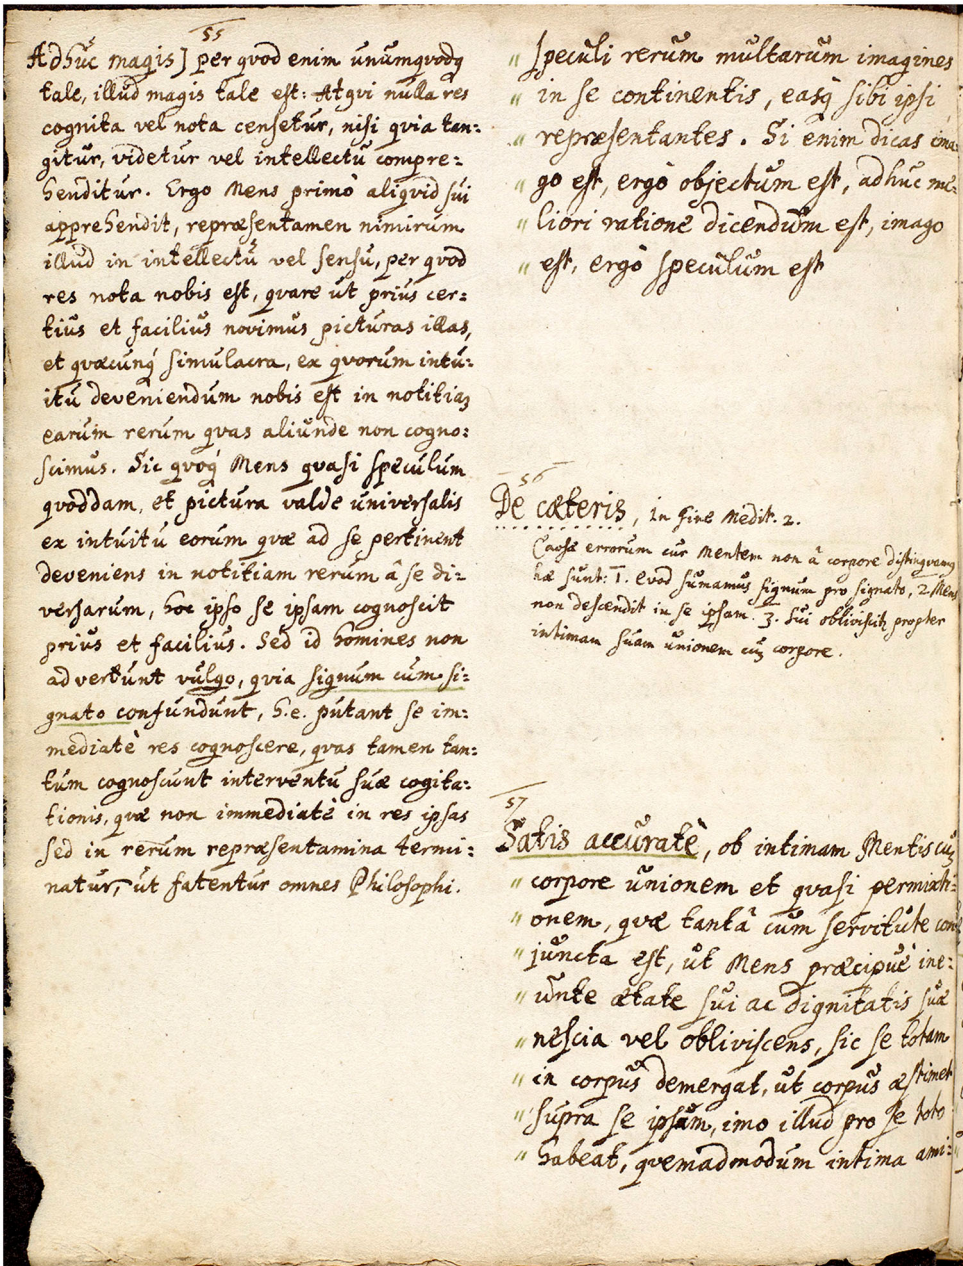 55
Adhuc magis] per qvod enim unumqvodq
tale, illud magis tale est: Atqvi nulla res
cognita vel nota censetur, nisi qvia tan:
gitur, videtur vel intellectu compre:
henditur. Ergo Mens primò aliqvid sui
apprehendit, repræsentamen nimirum
illud in intellectu vel sensu, per qvod
res nota nobis est, qvare ut prius cer:
tius et facilius novimus picturas illas,
et qvæcunq́ simulacra, ex qvorum intu:
itu deveniendum nobis est in notitiaʒ
earum rerum qvas aliunde non cogno:
scimus. Sic qvoq́ Mens qvasi speculum
qvoddam, et pictura valde universalis
ex intuitu eorum qvæ ad se pertinent
deveniens in notitiam rerum â se di:
versarum, hoc ipso se ipsam cognoscit
prius et facilius. Sed id homines non
advertunt vulgo, qvia signum cum si:
gnato confundunt, h.e. putant se im:
mediatè res cognoscere, qvas tamen tan:
tum cognoscunt interventu suæ cogita:
tionis, qvæ non immediatè in res ipsas
sed in rerum repræsentamina termi:
natur, ut fatentur omnes Philosophi.
" speculi rerum multarum imagines
" in se continentis, easq́ sibi ipsi
" repræsentantes. Si enim dicas ima:
" go est, ergò objectum est, adhuc me:
" liori ratione dicendum est, imago
" est, ergò speculum est
56
De cæteris, in fine Medit. 2.
Causæ errorum cur Mentem non â corpore distingvamq
hæ sunt: 1. Qvod sumamus signum pro signato, 2. Mens
non descendit in se ipsam. 3. Sui obliviscit propter
intimam suam unionem cuʒ corpore.
57
Satis accuratè, ob intimam Mentis cuʒ
" corpore unionem et qvasi permixti:
" onem, qvæ tantâ cum servitute con
" juncta est, ut Mens præcipuè ine:
" unte ætate sui ac dignitatis suæ
" nescia vel obliviscens, sic se totam
" in corpus demergat, ut corpus æstimet
" supra se ipsam, imo illud pro se toto
" habeat, qvemadmodum intima ami: